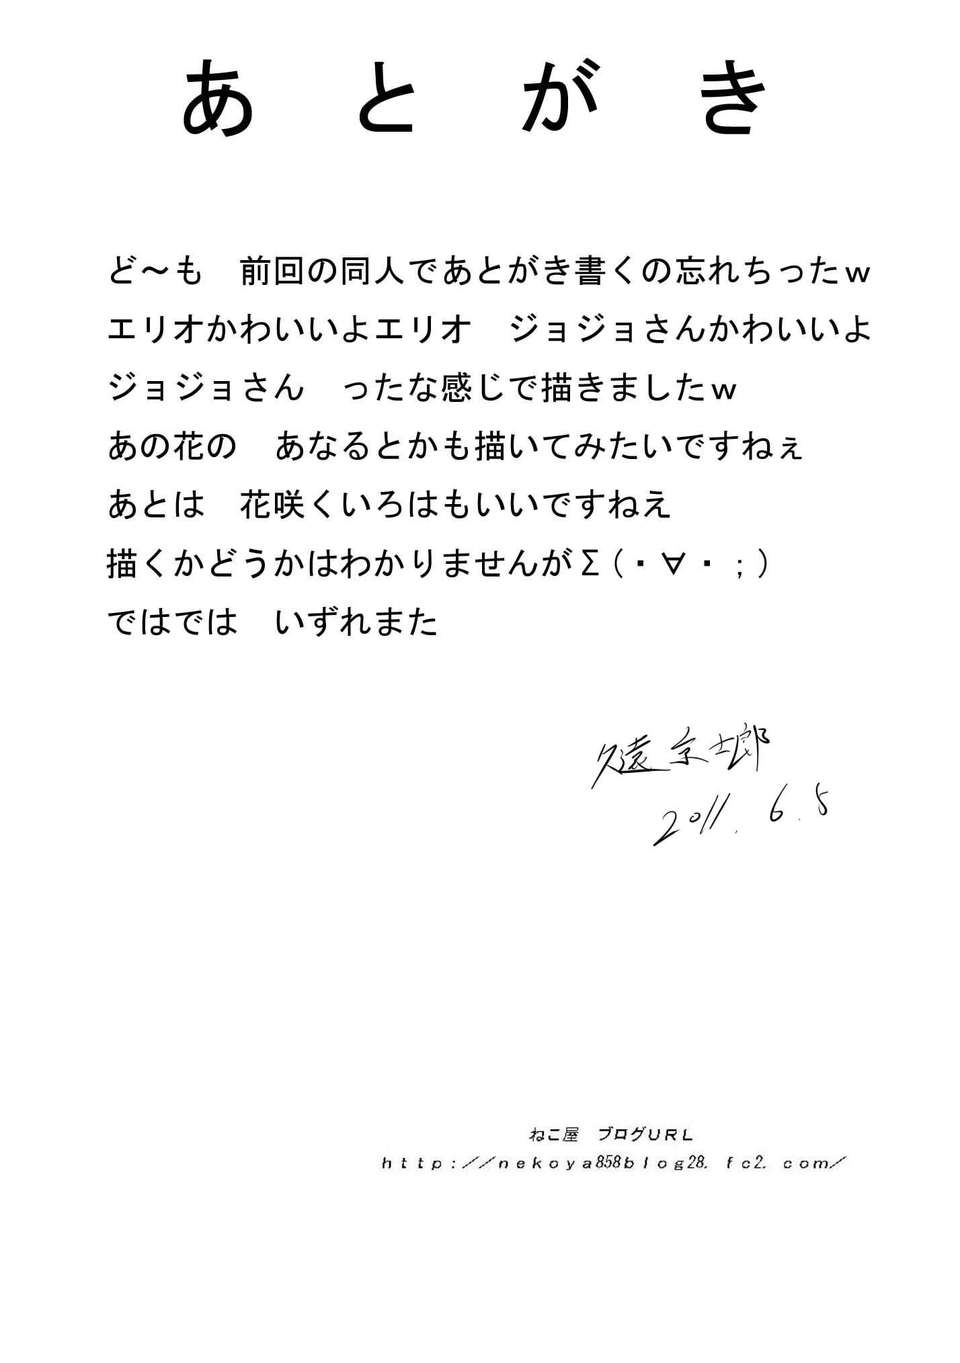 あとがき
ど～も　前回の同人であとがき書くの忘れちったｗ
エリオかわいいよエリオ　ジョジョさんかわいいよ
ジョジョさん　ったな感じで描きましたｗ
あの花の　あなるとかも描いてみたいですねぇ
あとは　花咲くいろはもいいですねえ
描くかどうかはわかりませんがΣ(・∀・；)
ではでは　いずれまた
久遠 京士郎
2011. 6. 5
ねこ屋　ブログURL
http://nekoya858blog28.fc2.com/